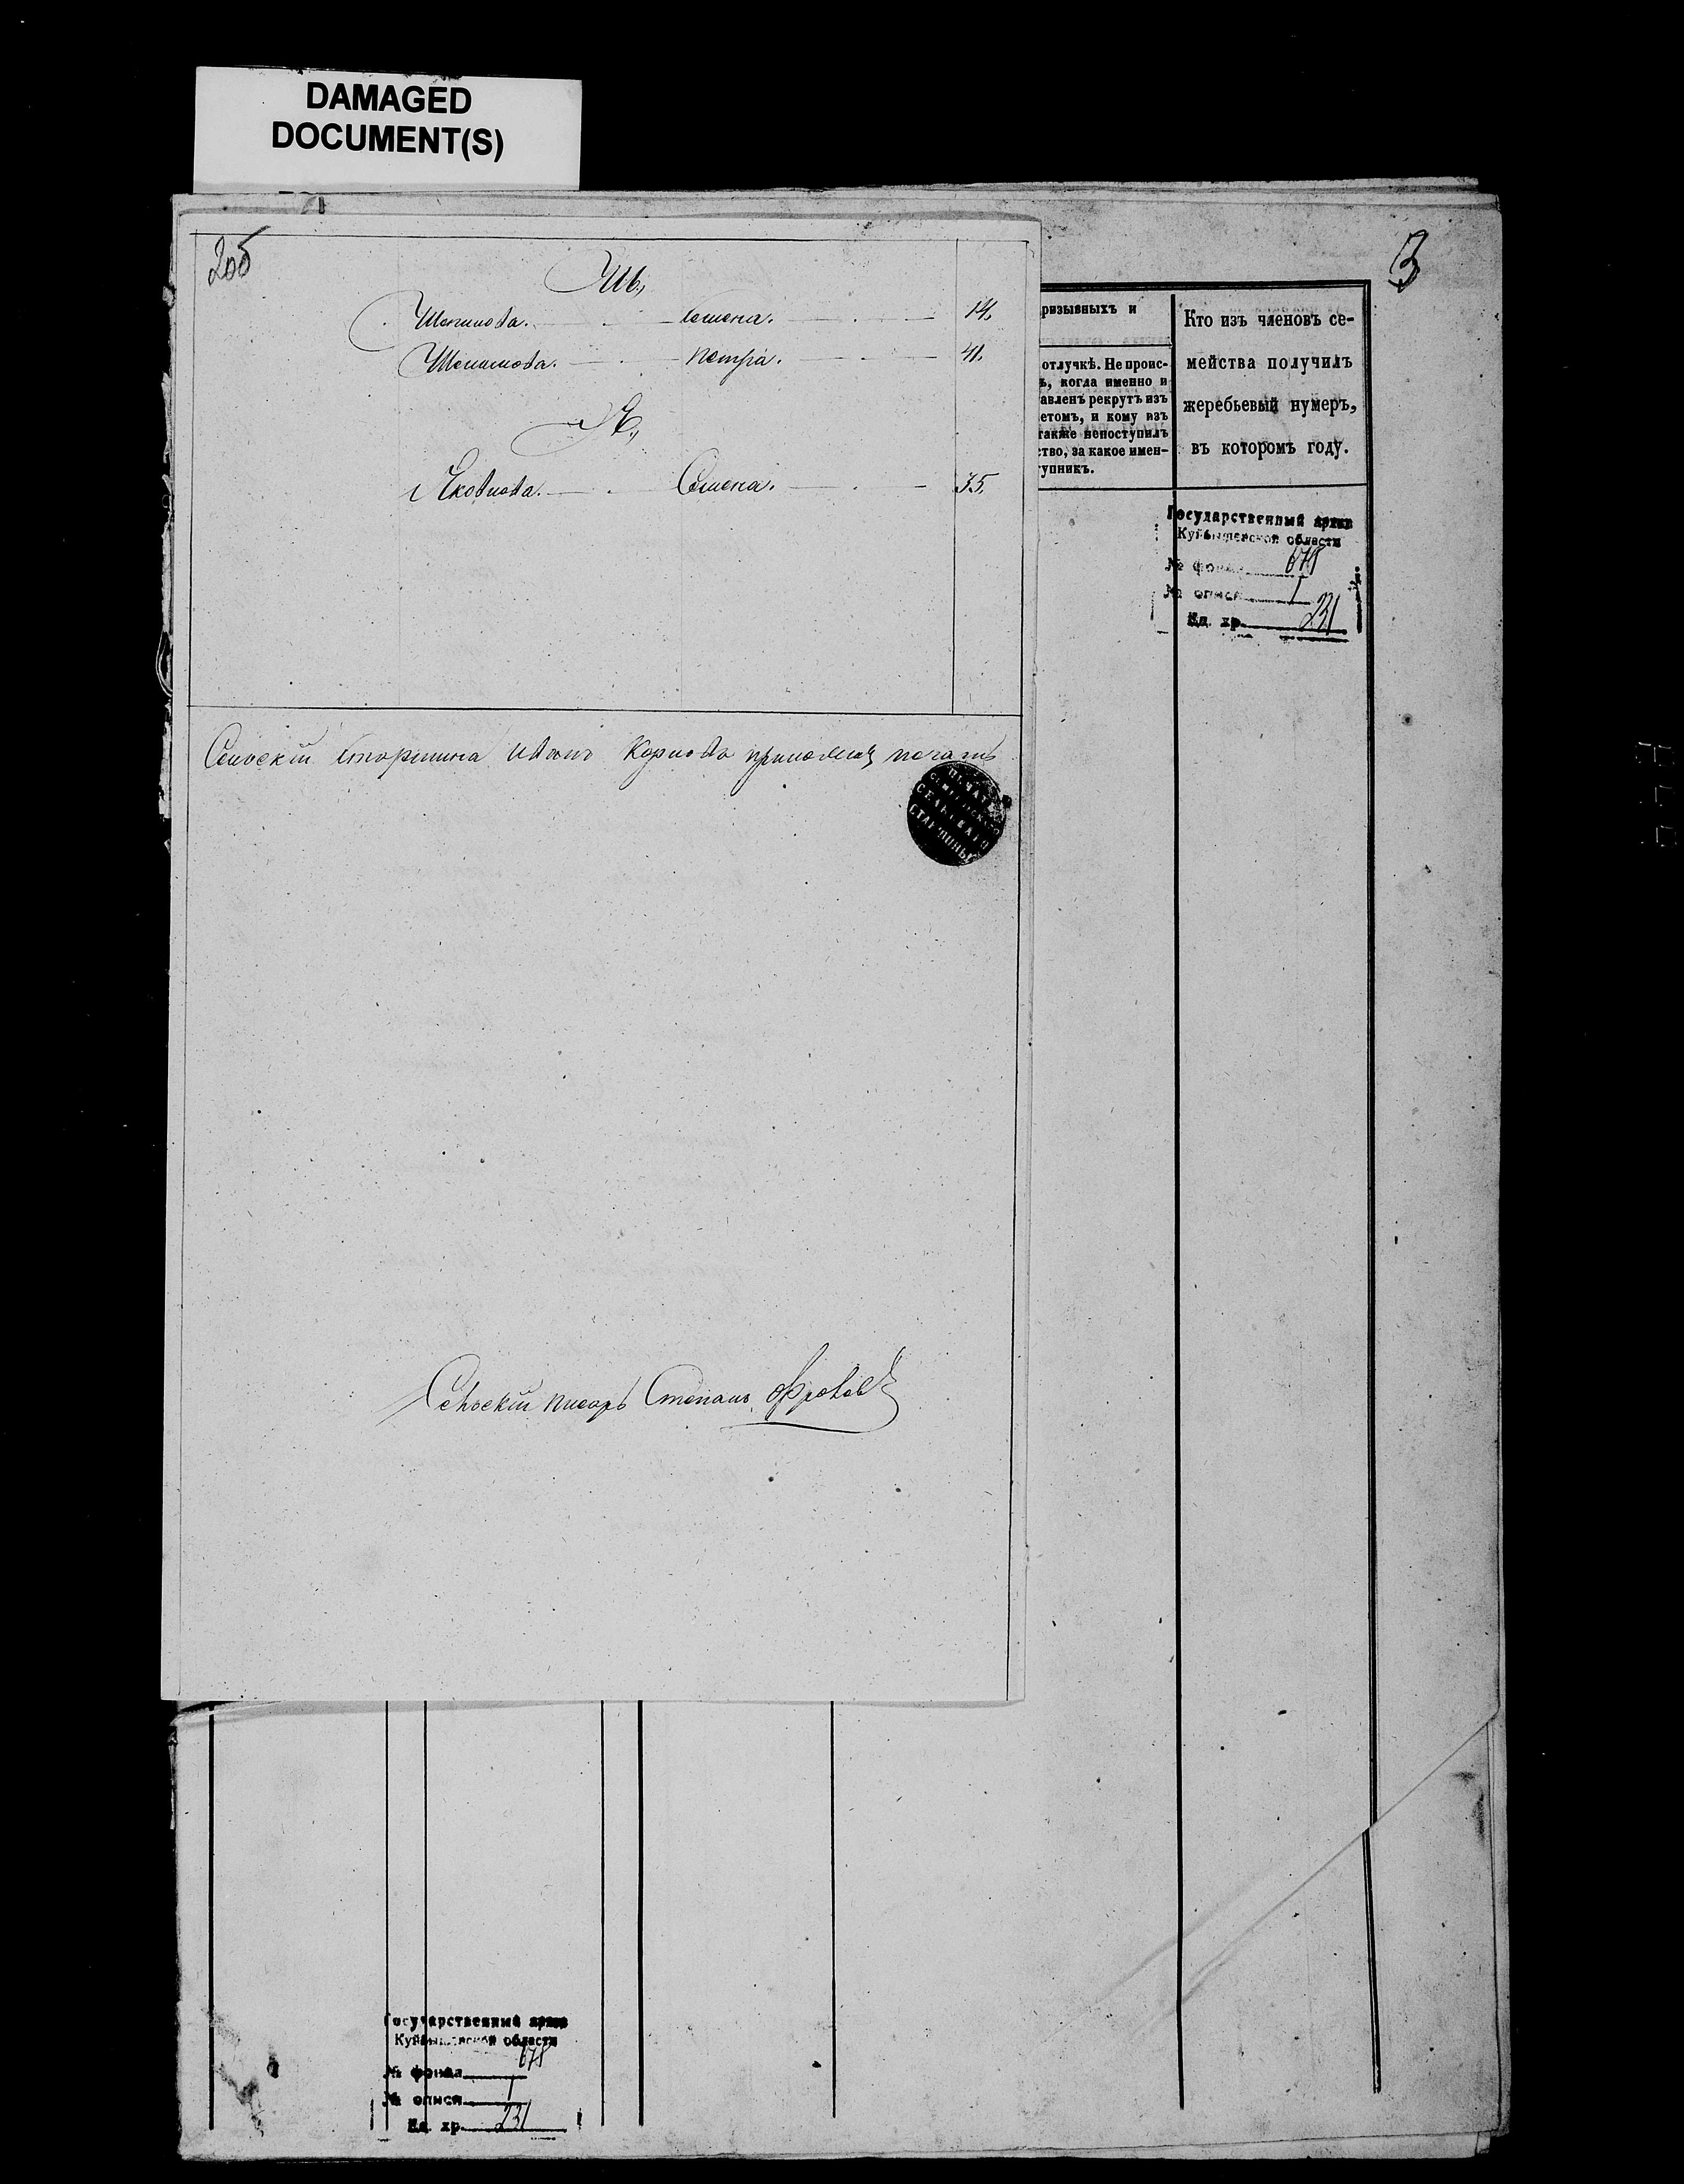 DAMAGED
DOCUMENT(S)
205
3
Ш.,
Семена. 14.
Петра. 41.
Я.,
Яковлева. Семена. 35.
Сельскій старшина Иванъ приложилъ печать
ПЕЧАТЬ
СЕЛЬСКАГО
СТАРШИНЫ
Сельскій писарь Степанъ
ризывныхъ и
отлучкѣ. Не проис-
ь, когда именно и
авленъ рекрутъ изъ
етомъ, и кому изъ
также непоступилъ
ство, за какое имен-
упникъ.
Кто изъ членовъ се-
мейства получилъ
жеребьевый нумеръ,
въ которомъ году.
Государственный архив
Куйбышевской области
№ фонда 678
№ описи 1
Ед. хр. 231
Государственный архив
Куйбышевской области
№ фонда 678
№ описи 1
Ед. хр. 231